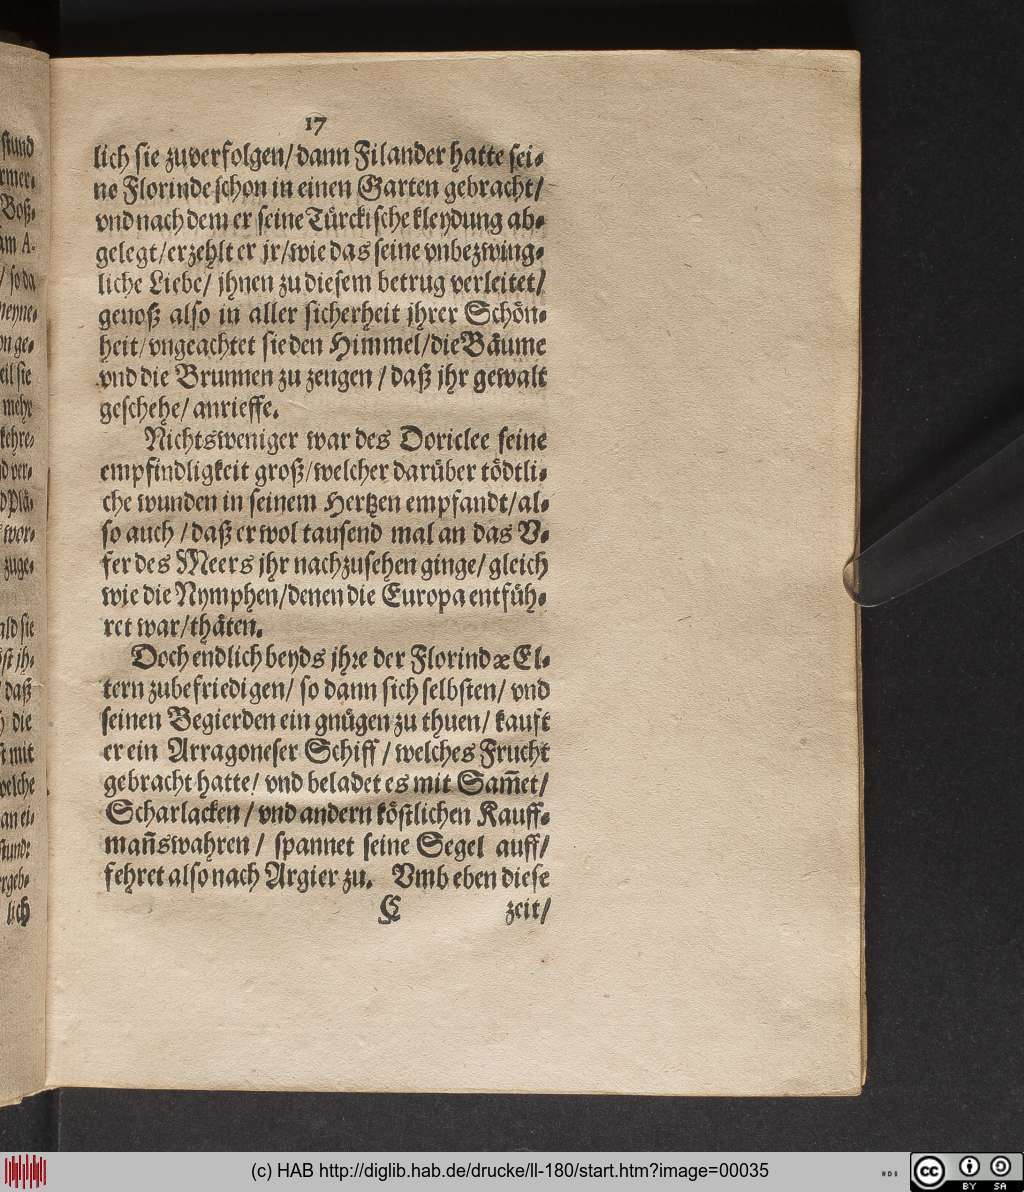 17
lich sie zuverfolgen/ dann Filander hatte sei-
ne Florinde schon in einen Garten gebracht/
vnd nach dem er seine Türckische kleydung ab-
gelegt/ erzehlt er jr/ wie das seine vnbezwing-
liche Liebe/ jhnen zu diesem betrug verleitet/
genoß also in aller sicherheit jhrer Schön-
heit/ vngeachtet sie den Himmel/ die Bäume
vnd die Brunnen zu zeugen / daß jhr gewalt
geschehe/ anrieffe.
Nichtsweniger war des Doriclee seine
empfindligkeit groß/ welcher darüber tödtli-
che wunden in seinem Hertzen empfandt/ al-
so auch / daß er wol tausend mal an das V-
fer des Meers jhr nachzusehen ginge/ gleich
wie die Nymphen/ denen die Europa entfüh-
ret war/ thäten.
Doch endlich beyds jhre der Florindæ El-
tern zubefriedigen/ so dann sich selbsten/ vnd
seinen Begierden ein gnügen zu thuen/ kaufft
er ein Arragoneser Schiff / welches Frucht
gebracht hatte/ vnd beladet es mit Sam̃et/
Scharlacken / vnd andern köstlichen Kauff-
man̄swahren / spannet seine Segel auff/
fehret also nach Argier zu. Vmb eben diese
C zeit/
stund
Boß-
am A-
/ so da
eil sie
mehr
kehre-
wor-
zuge-
ald sie
daß
die
welche
an ei-
lich
(c) HAB http://diglib.hab.de/drucke/ll-180/start.htm?image=00035
cc BY SA